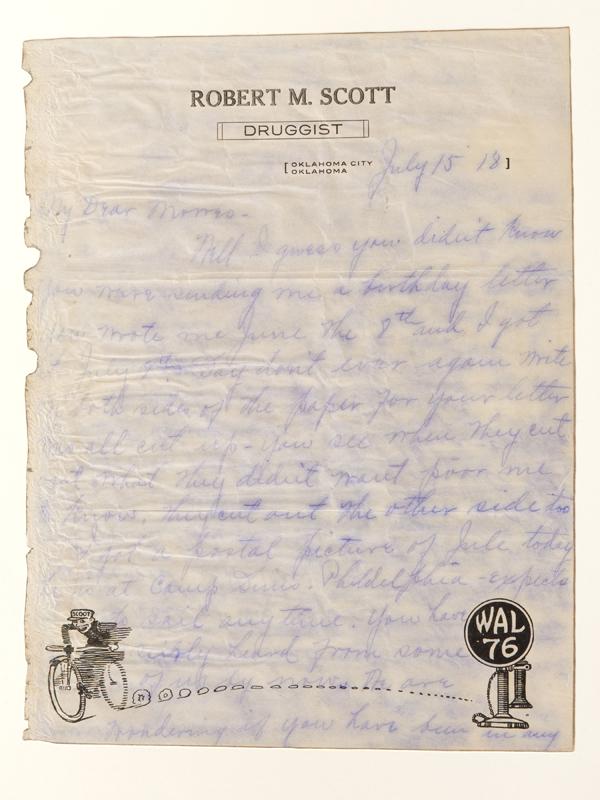 ROBERT M. SCOTT
DRUGGIST
[OKLAHOMA CITY
OKLAHOMA
July 15 18]
My Dear
Well I guess you didn't know
you were sending me a birthday letter
you wrote me June the 8th and I got
July 8th. Say don't ever again write
both sides of the paper for your letter
all cut up - you see when they cut
out what they didn't want poor me
know. they cut out the other side too
got a postal picture of Jule today
is at Camp Phildelphia - expects
to sail any time. You have
heard from some
of us by now. We are
SCOOT
WAL
76
wondering if you have been in any